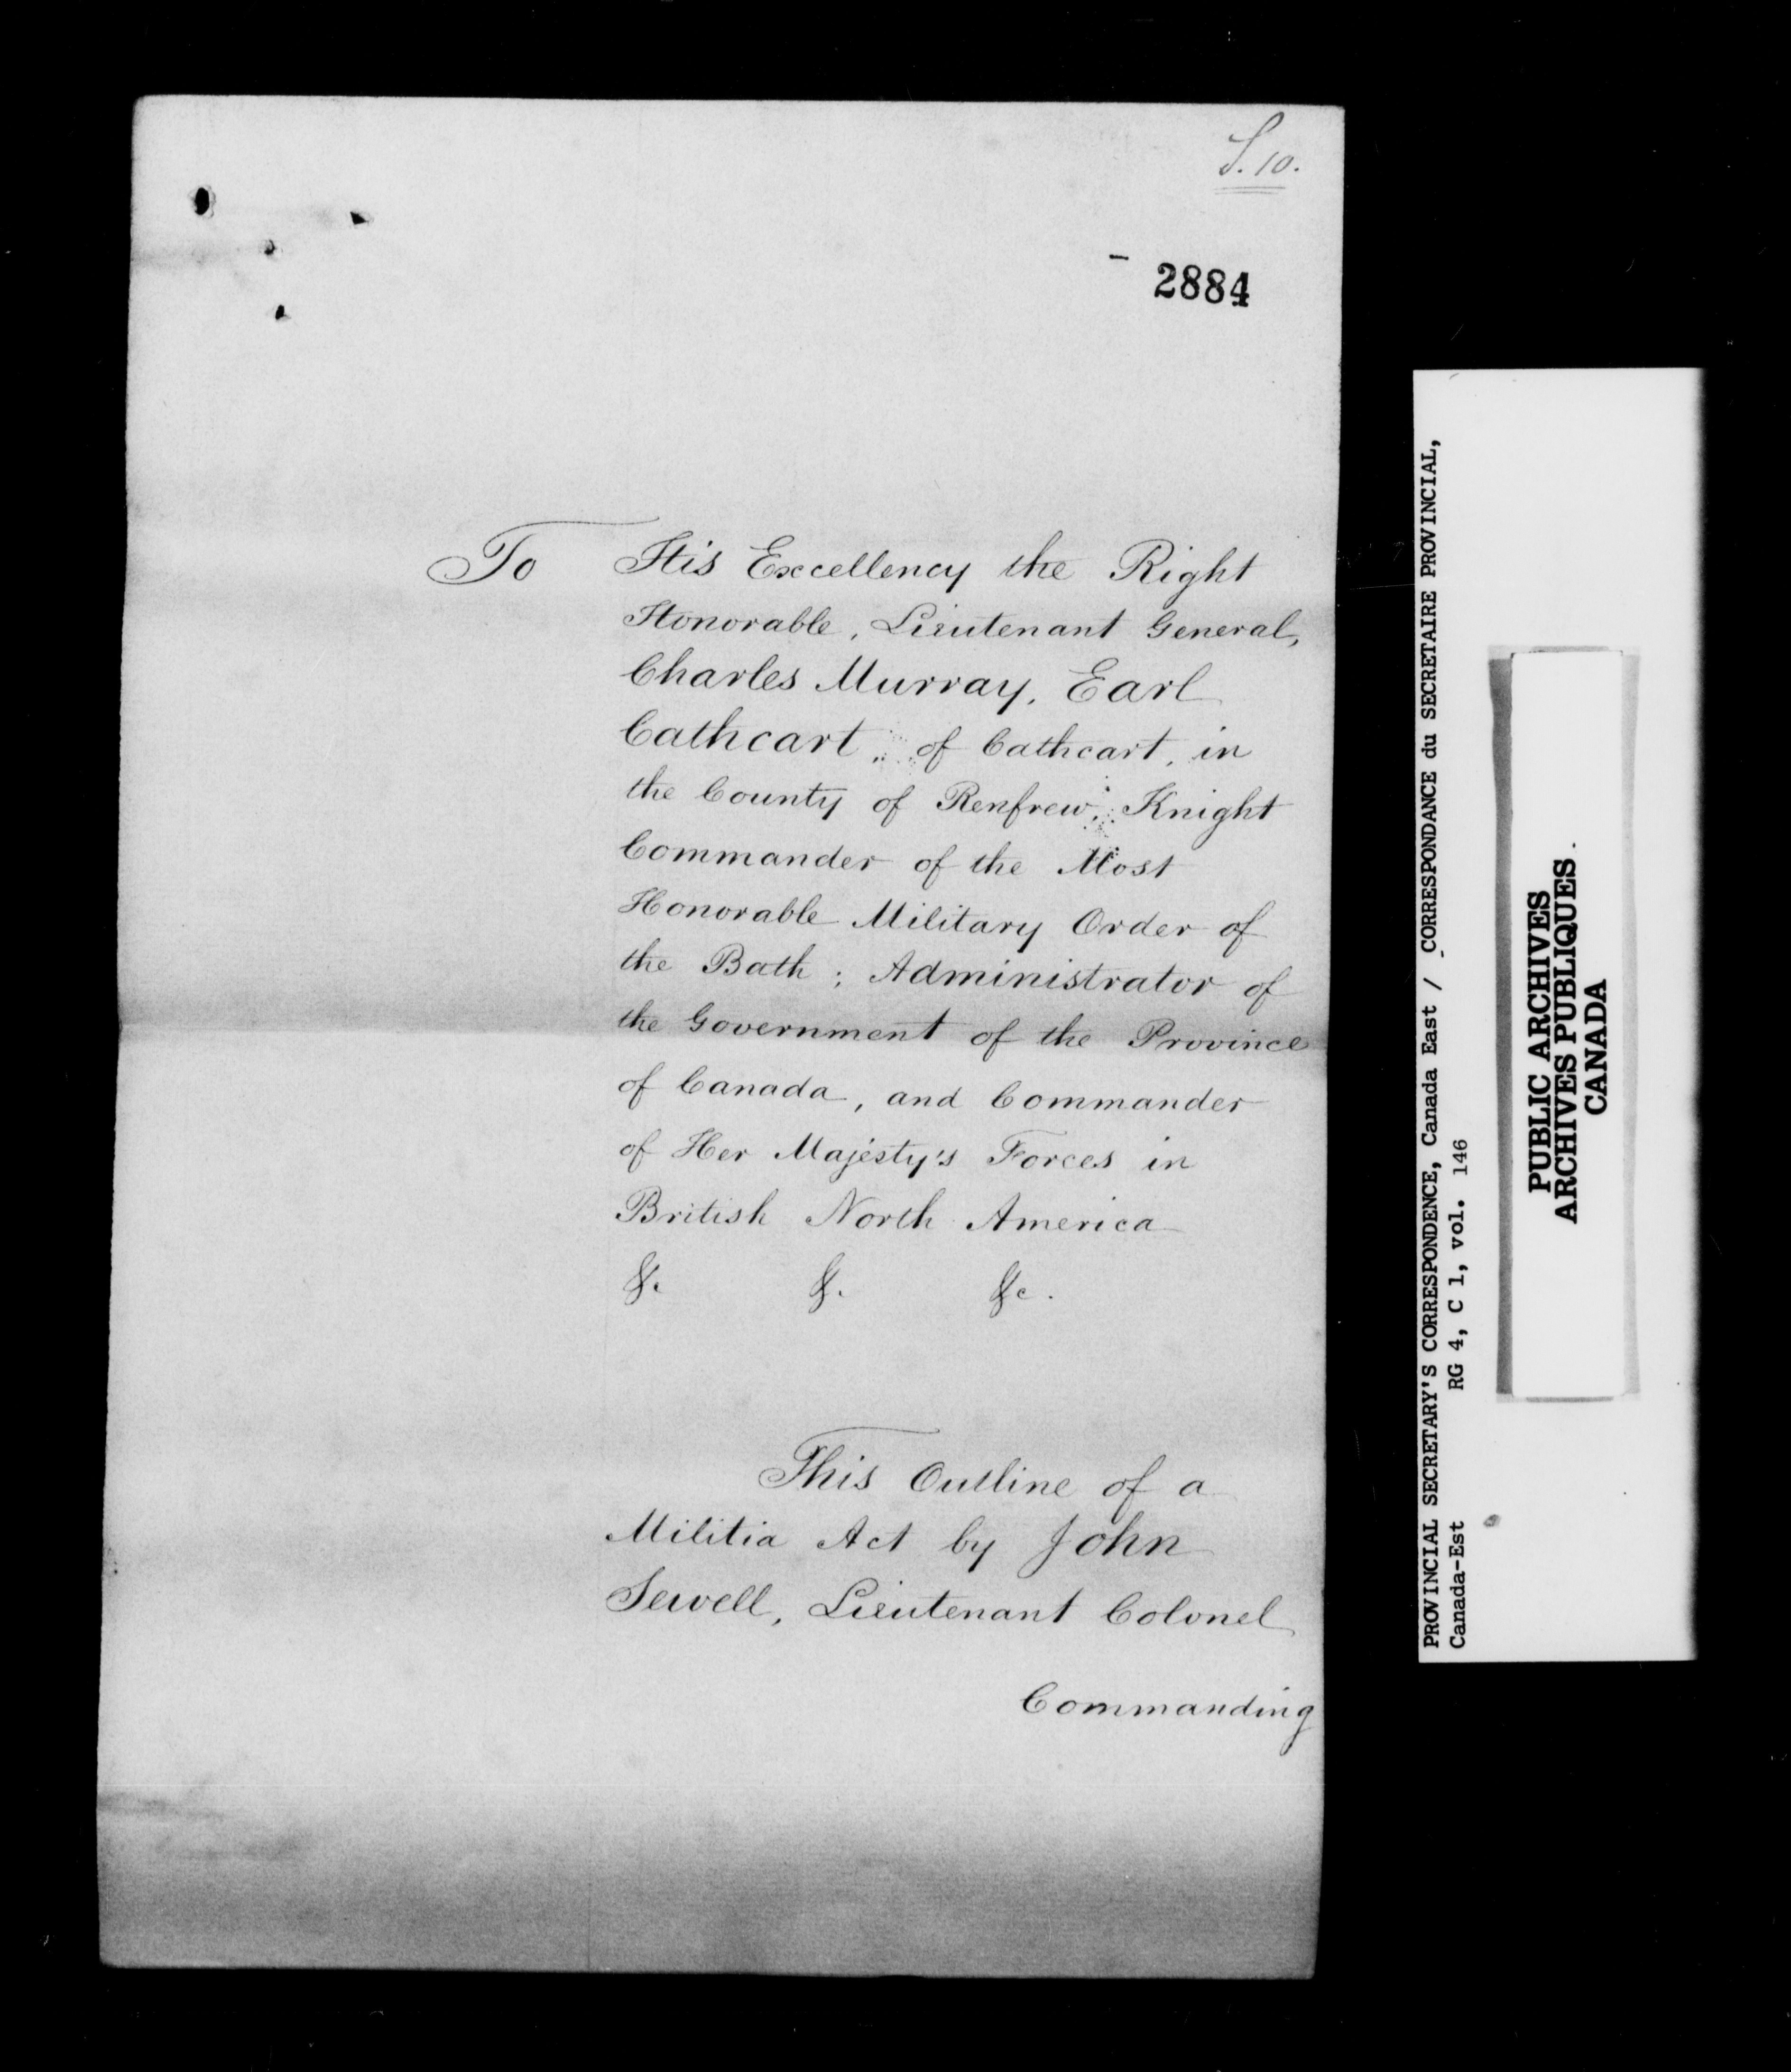 S. 10.
2884
To His Excellency the Right
Honorable, Lieutenant General,
Charles Murray, Earl
Cathcart, of Cathcart, in
the County of Renfrew, Knight
Commander of the Most
Honorable Military Order of
the Bath; Administrator of
the Government of the Province
of Canada, and Commander
of Her Majesty's Forces in
British North America
&. &. &c.
This Outline of a
Militia Act by John
Sewell, Lieutenant Colonel
Commanding
PROVINCIAL SECRETARY'S CORRESPONDENCE, Canada East / CORRESPONDANCE du SECRETAIRE PROVINCIAL,
Canada-Est RG 4, C 1, vol. 146
PUBLIC ARCHIVES
ARCHIVES PUBLIQUES
CANADA